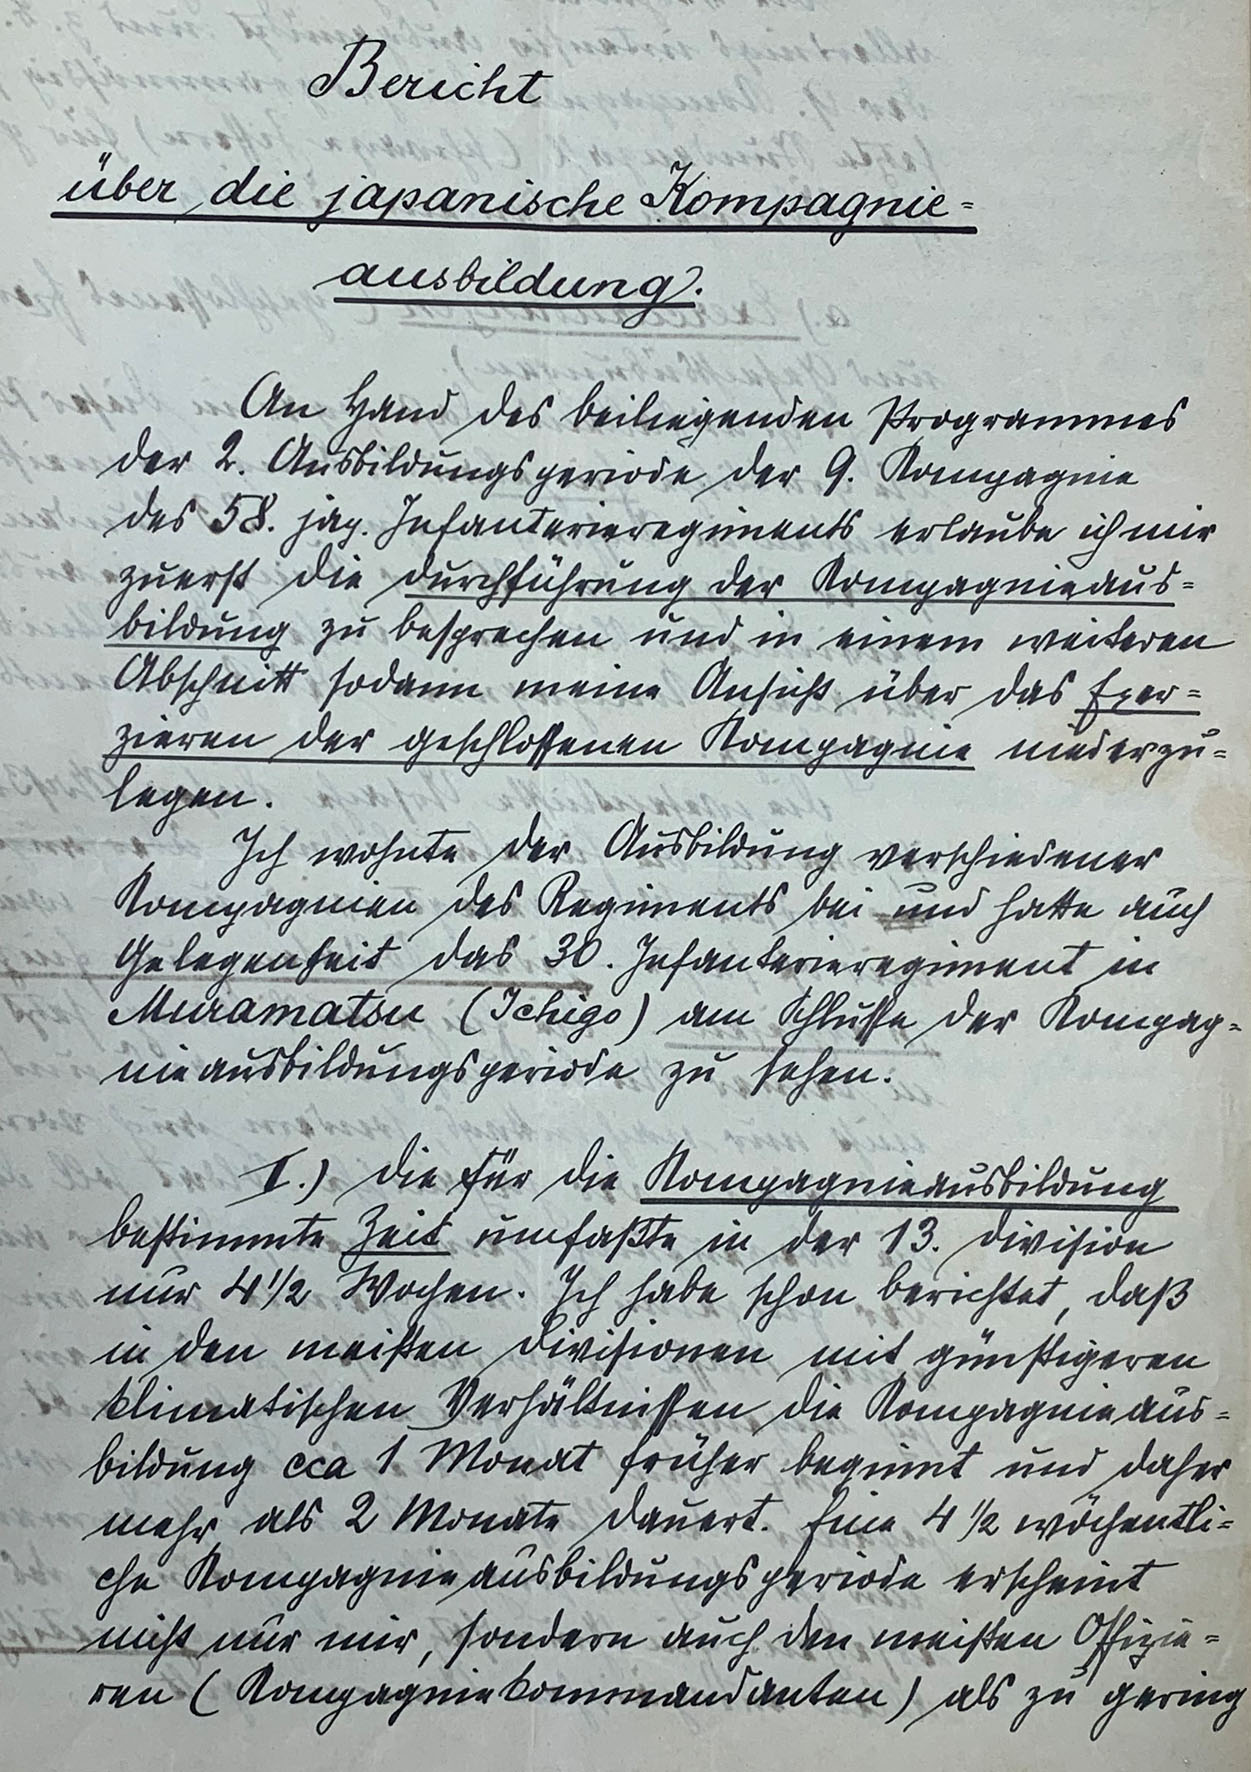 Bericht
über die japanische Kompagnie=
ausbildung.
An Hand des beiliegenden Programmes
der 2. Ausbildungsperiode der 9. Kompagnie
des 58. jap. Infanterieregiments erlaube ich mir
zuerst die Durchführung der Kompagnieaus=
bildung zu besprechen und in einem weiteren
Abschnitt sodann meine Ansicht über das Exer=
zieren der geschlossenen Kompagnie niederzu=
legen.
Ich wohnte der Ausbildung verschiedener
Kompagnien des Regiments bei und hatte auch
Gelegenheit das 30. Infanterieregiment in
Muramatsu (Ichigo) am Schlusse der Kompag=
nieausbildungsperiode zu sehen.
I.) Die für die Kompagnieausbildung
bestimmte Zeit umfaßte in der 13. Division
nur 4 1/2 Wochen. Ich habe schon berichtet, daß
in den meisten Divisionen mit günstigeren
klimatischen Verhältnissen die Kompagnieaus=
bildung cca 1 Monat früher beginnt und daher
mehr als 2 Monate dauert. Eine 4 1/2 wöchentli=
che Kompagnieausbildungsperiode erscheint
nicht nur mir, sondern auch den meisten Offizie=
ren (Kompagniekommandanten) als zu gering